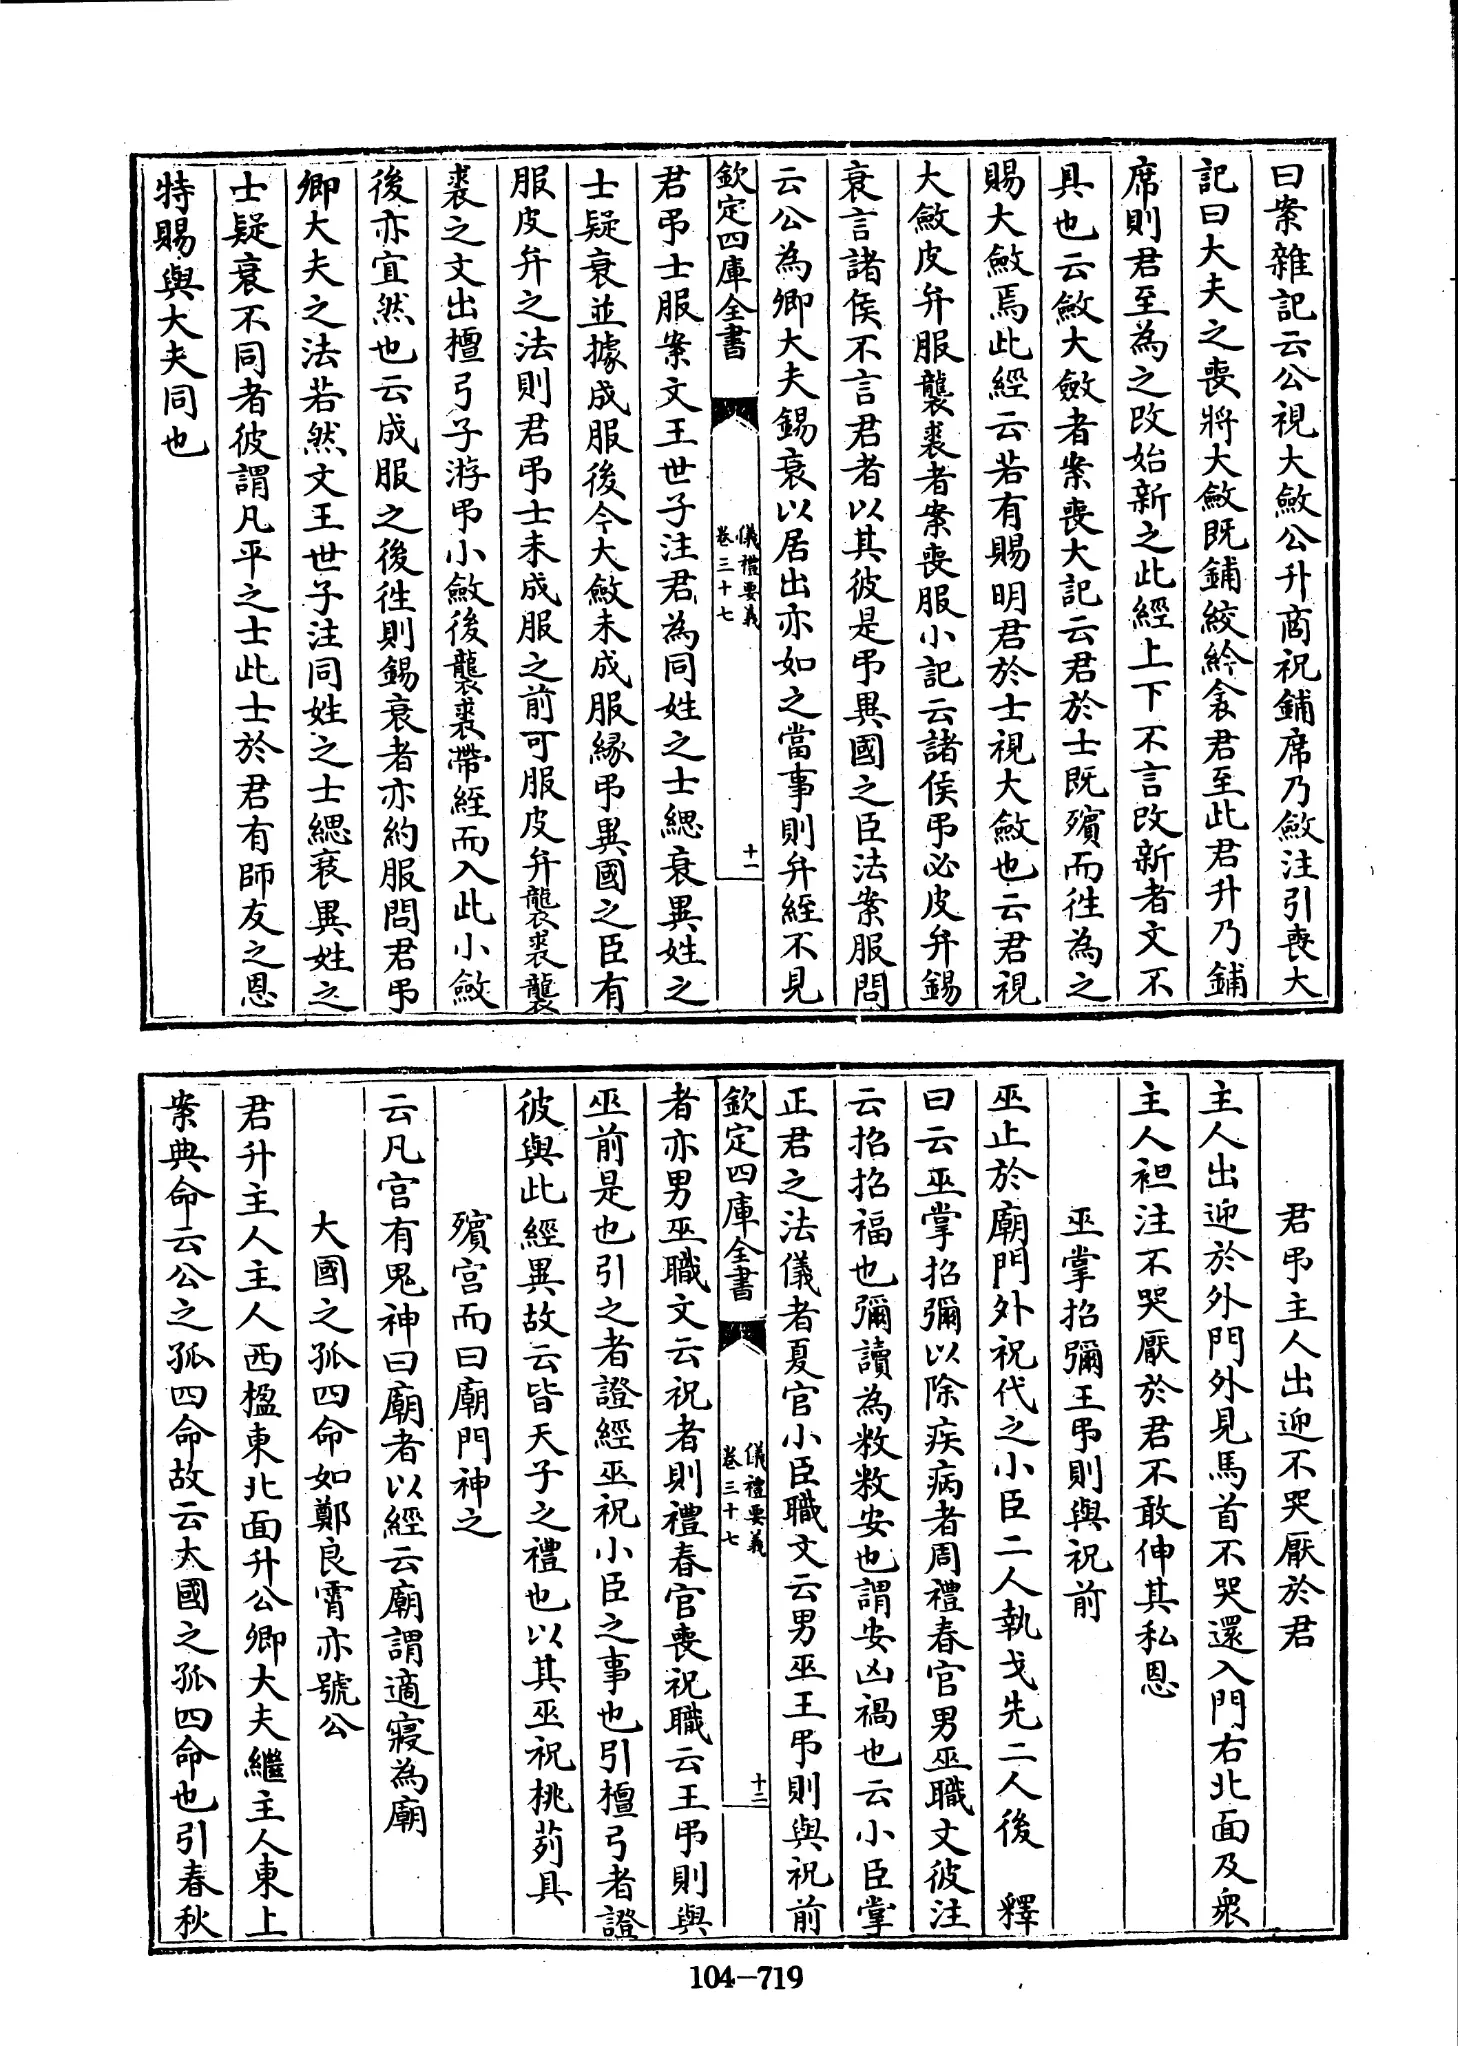 曰案雜記云公視大斂公升商祝鋪席乃斂注引喪大
記曰大夫之喪將大斂既鋪絞紟衾君至此君升乃鋪
席則君至為之改始新之此經上下不言改新者文不
具也云斂大斂者案喪大記云君於士既殯而徃為之
賜大斂焉此經云若有賜明君於士視大斂也云君視
大斂皮弁服襲裘者案喪服小記云諸侯弔必皮弁錫
衰言諸侯不言君者以其彼是弔異國之臣法案服問
云公為卿大夫錫衰以居出亦如之當事則弁絰不見
欽定四庫全書
儀禮要義
卷三十七
十一
君弔士服案文王世子注君為同姓之士緦衰異姓之
士疑衰並據成服後今大斂未成服緣弔異國之臣有
服皮弁之法則君弔士未成服之前可服皮弁襲裘襲
裘之文出檀弓子游弔小斂後襲裘帶絰而入此小斂
後亦宜然也云成服之後徃則錫衰者亦約服問君弔
卿大夫之法若然文王世子注同姓之士緦衰異姓之
士疑衰不同者彼謂凡平之士此士於君有師友之恩
特賜與大夫同也
君弔主人出迎不哭厭於君
主人出迎於外門外見馬首不哭還入門右北面及衆
主人袒注不哭厭於君不敢伸其私恩
巫掌招彌王弔則與祝前
巫止於廟門外祝代之小臣二人執戈先二人後　釋
曰云巫掌招彌以除疾病者周禮春官男巫職文彼注
云招招福也彌讀為敉敉安也謂安凶禍也云小臣掌
正君之法儀者夏官小臣職文云男巫王弔則與祝前
欽定四庫全書
儀禮要義
卷三十七
十二
者亦男巫職文云祝者則禮春官喪祝職云王弔則與
巫前是也引之者證經巫祝小臣之事也引檀弓者證
彼與此經異故云皆天子之禮也以其巫祝桃茢具
殯宮而曰廟門神之
云凡宮有鬼神曰廟者以經云廟謂適寢為廟
大國之孤四命如鄭良霄亦號公
君升主人主人西楹東北面升公卿大夫繼主人東上
案典命云公之孤四命故云大國之孤四命也引春秋
104—719